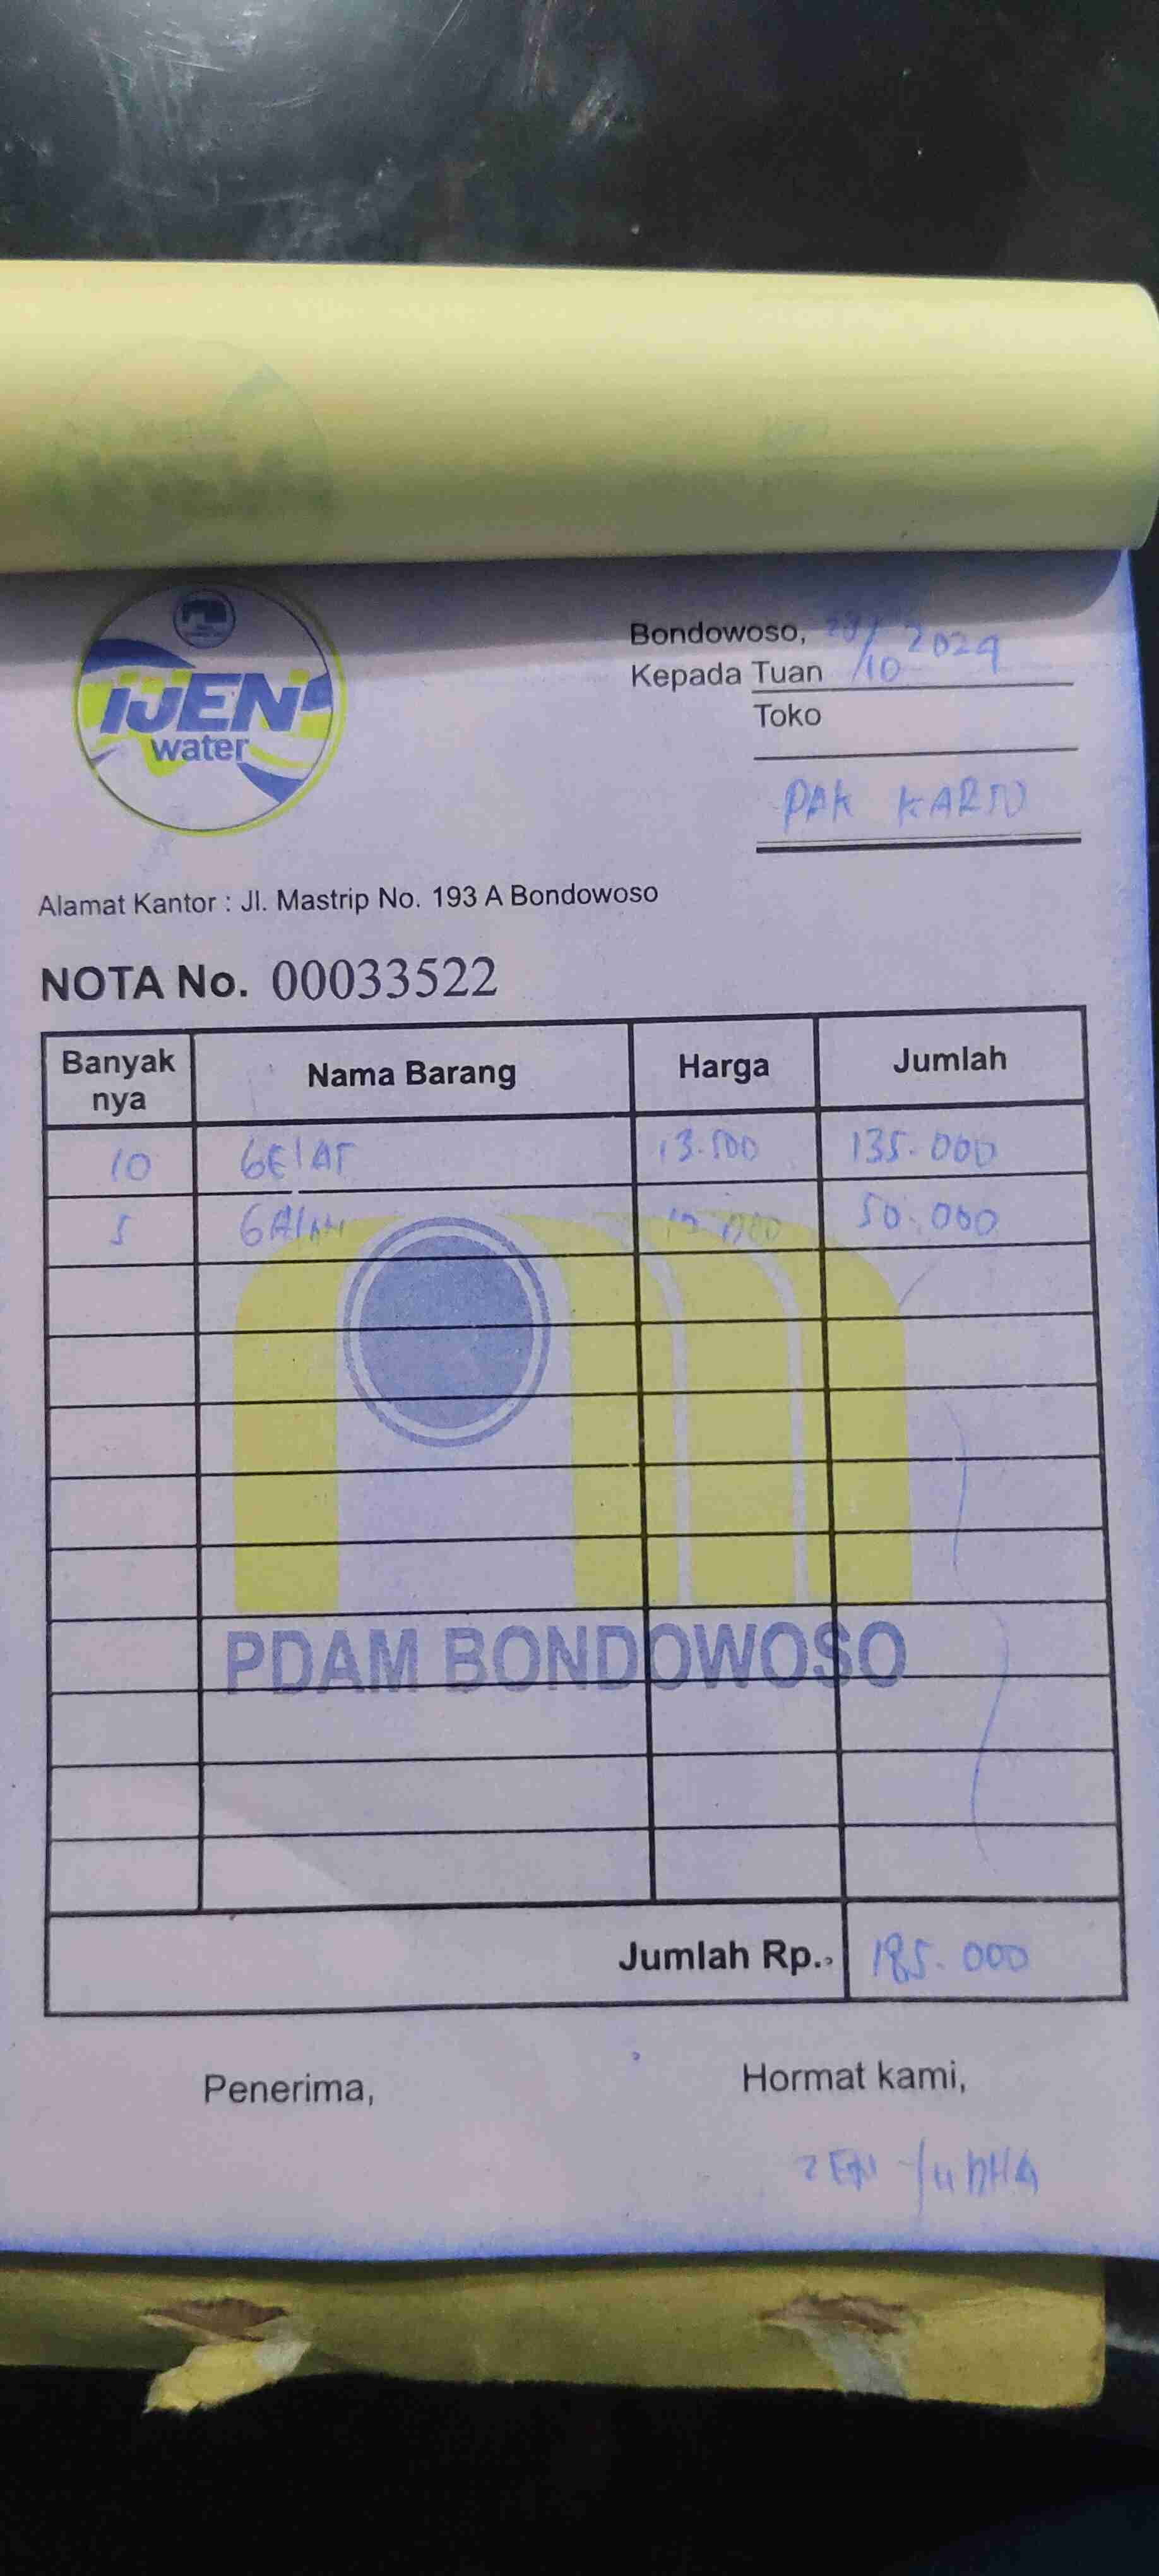 IJEN
water
Bondowoso, 28/10 2024
Kepada Tuan
Toko
PAK KARTO
Alamat Kantor : Jl. Mastrip No. 193 A Bondowoso
NOTA No. 00033522
Banyak nya Nama Barang Harga Jumlah
10 GELAS 13.500 135.000
5 GALON 10.000 50.000
PDAM BONDOWOSO
Jumlah Rp., 185.000
Penerima, Hormat kami,
ZEN YUDHA